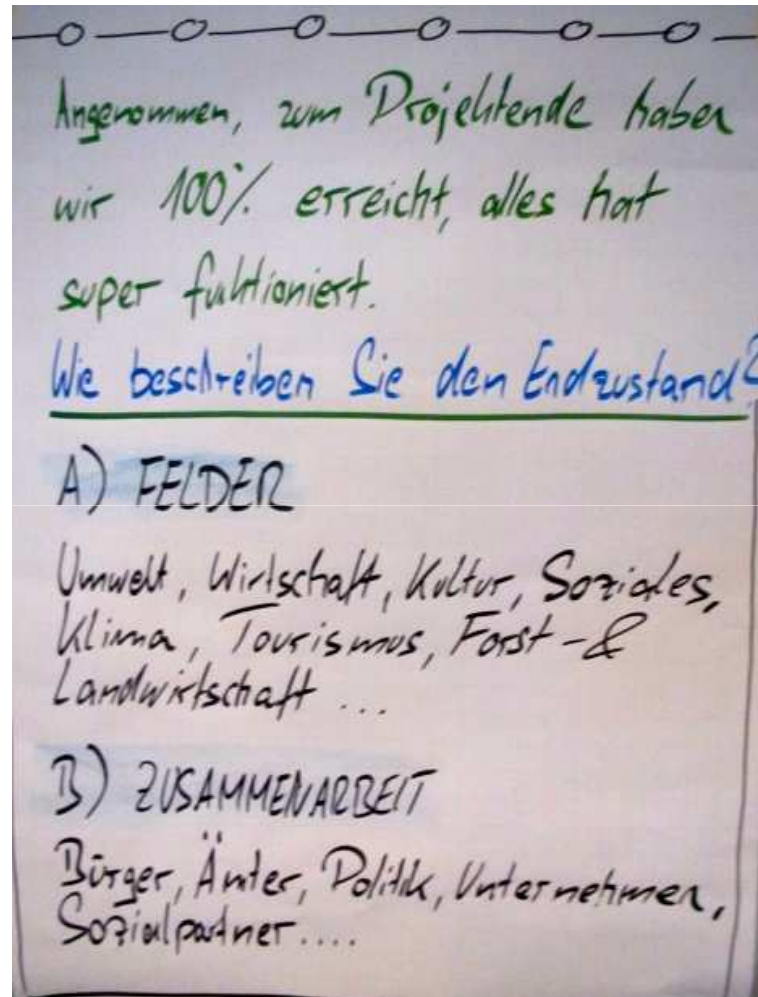 Angenommen, zum Projektende haben
wir 100% erreicht, alles hat
super fuktioniert.
Wie beschreiben Sie den Endzustand?
A) FELDER
Umwelt, Wirtschaft, Kultur, Soziales,
Klima, Tourismus, Forst-&
Landwirtschaft ...
B) ZUSAMMENARBEIT
Bürger, Ämter, Politik, Unternehmen,
Sozialpartner....